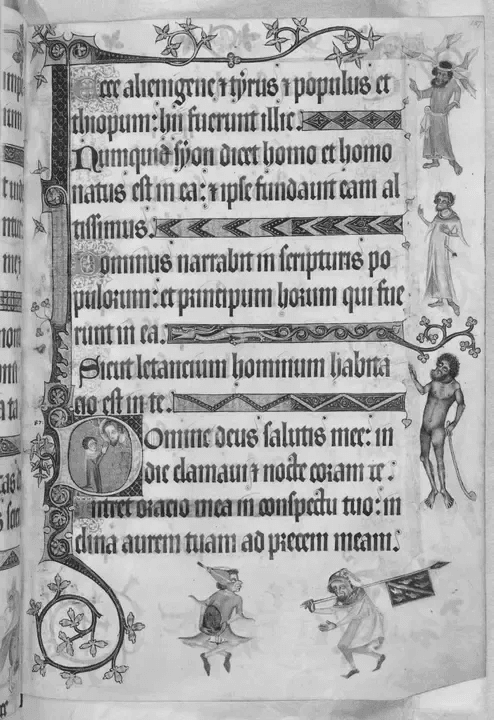 Ecce alienigene ⁊ tyrus ⁊ populus et
thiopum: hii fuerunt illic.
Numquid syon dicet homo et homo
natus est in ea: ⁊ ipse fundauit eam al
tissimus.
Dominus narrabit in scripturis po
pulorum: et principum horum qui fue
runt in ea.
Sicut letancium hominum habita
cio est in te.
Domine deus salutis mee: in
die clamaui ⁊ nocte coram te.
Intret oracio mea in conspectu tuo: in
clina aurem tuam ad precem meam.